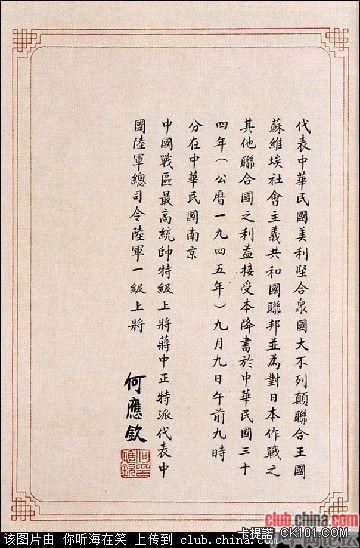 代表中華民國美利堅合衆國大不列顛聯合王國
蘇維埃社會主義共和國聯邦並為對日本作戰之
其他聯合國之利益接受本降書於中華民國三十
四年(公曆一九四五年)九月九日午前九時
分在中華民國南京
中國戰區最高統帥特級上將蔣中正特派代表中
國陸軍總司令陸軍一級上將
何應欽
club.china.com
卡提諾 CK101.COM
该图片由 你听海在笑 上传到 club.china.com